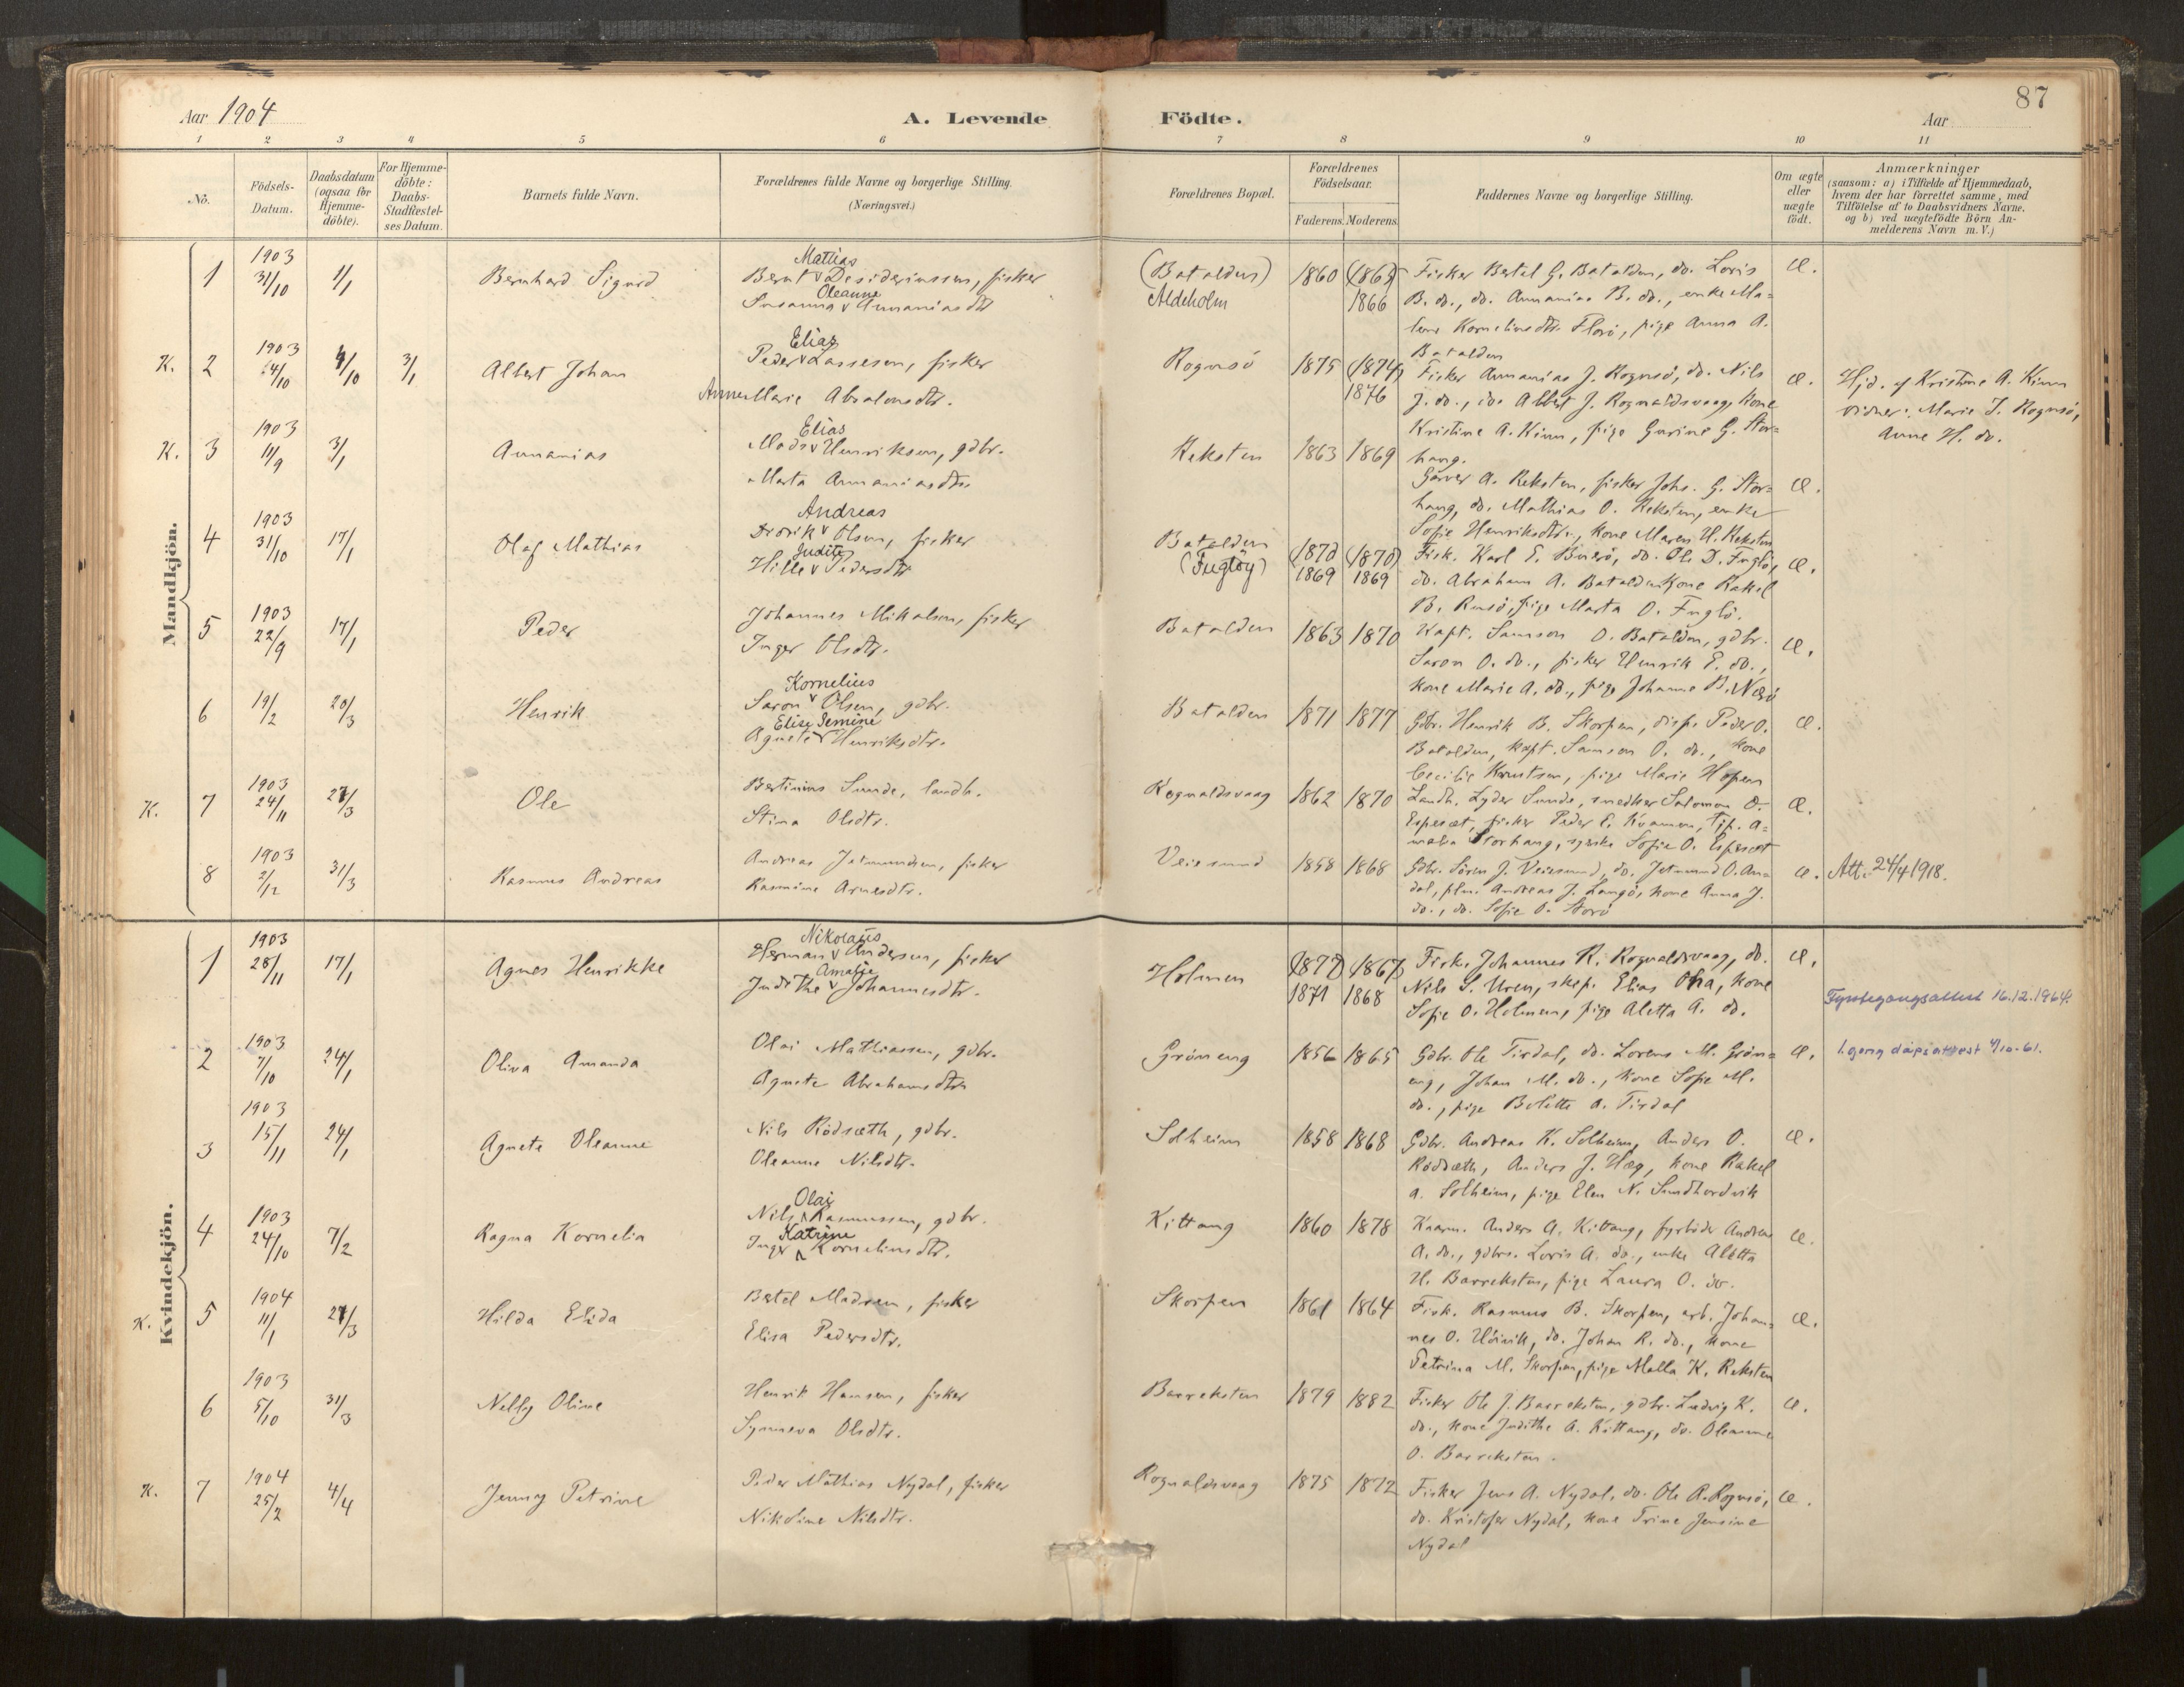 87
Aar 1904
A. Levende Födte.
Aar
1 2 3 4 5 6 7 8 9 10 11
No.
Födsels-
Datum.
Daabsdatum
(ogsaa for
Hjemme-
döbte).
For Hjemme-
döbte:
Daabs-
Stadfæstel-
ses Datum.
Barnets fulde Navn.
Forældrenes fulde Navne og borgerlige Stilling.
(Næringsvei.)
Forældrenes Bopæl.
Forældrenes
Födselsaar.
Faderens. Moderens.
Faddernes Navne og borgerlige Stilling.
Om ægte
eller
uægte
födt.
Anmærkninger
(saasom: a) i Tilfælde af Hjemmedaab,
hvem der har forrettet samme, med
Tilföielse af to Daabsvidners Navne.
og b) ved uægtefödte Börn An-
melderens Navn m. V.)
Mandkjön.
1 1903 31/10 1/1 Bernhard Sigurd
Mathias
Bernt v Desideriussen, fisker
Oleanne
Susanna v Annaniasdtr
(Batalden)
Aldeholm
1860 (1863)
1866
Fisker Bertel G. Batalden, do. Loris
B. do., do. Annanias B. do., enke Ma-
lene Korneliusdtr. Florö, pige Anna A.
Batalden
Æ.
K. 2 1903 4/10 4/10 3/1 Albert Johan
Elias
Peder v Lassesen, fisker
Anne Marie Absalonsdtr.
Rognsö 1875 (1874)
1876
Fisker Annanias J. Rognsö, do. Nils
J. do., do. Albert J. Rognaldsvaag, kone
Kristine A. Kinn, pige Gurine G. Stor-
hang.
Æ.
Hjd. af Kristine A. Kinn
vidner: Marie J. Rognsö,
Anne H. do.
K. 3 1903 11/9 3/1 Annanias
Elias
Mads v Henriksen, gdbr.
Marta Annaniasdtr.
Reksten 1863 1869
Garver A. Reksten, fisker Johs. G. Stor-
hang, do. Mathias O. Reksten, enke
Sofie Henriksdtr., kone Maren H. Reksten
Æ.
4 1903 31/10 17/1 Olaf Mathias
Andreas
Didrik v Olsen, fisker
Judite
Hille v Pedersdtr
Batalden
(Fuglöy)
(1872 (1870)
1869 1869
Fisk. Karl E. Buerö, do. Ole D. Fuglö,
do. Abraham A. Batalden kone Rakel
B. Rusö, pige Marta O. Fuglö.
Æ.
5 1903 22/9 17/1 Peder
Johannes Mikalsen, fisker
Inger Olsdtr.
Batalden 1863 1870
Kapt. Samson O. Batalden, gdbr.
Saron O. do., fisker Henrik E. do.,
kone Marie A. do., pige Johanne B. Nærö
Æ.
6 19/2 20/3 Henrik
Kornelius
Saron v Olsen, gdbr.
Elise Jemine
Agnete v Henriksdtr.
Batalden 1871 1877
Gdbr. Henrik B. Skorpen, Peder O.
Batalden, kapt. Samson O. do., kone
Cecilie Knutsen, pige Marie Hopen
Æ.
K. 7 1903 24/11 27/3 Ole
Bertinius Sunde, landh.
Stina Olsdtr.
Rognaldsvaag 1862 1870
Landh. Lyder Sunde, snedker Salomon O.
Espesæt, fisker Peder E. Kvamen, Tjp. A-
malia Storhang, syerske Sofie O. Espesæt
Æ.
8 1903 2/12 31/3 Rasmus Andreas
Andreas Jetmundsen, fisker
Rasmine Arnesdtr.
Veiesund 1858 1868
Gdbr. Sören J. Veiesund, do. Jetmund O. An-
dal, plm. Andreas J. Langö, kone Anna J.
do., do. Sofie O. Storö
Æ.
Att. 24/4 1918.
Kvindekjön.
1 1903 28/11 17/1 Agnes Henrikke
Nikolaus
Herman v Andersen, fisker
Amalie
Judithe v Johannesdtr.
Holmen
(1872) (1867)
1871 1868
Fisk. Johannes R. Rognaldsvaag, do.
Nils S. Uren, skp. Elias Otra, kone
Sofie O. Holmen, pige Aletta A. do.
Æ.
Fyrstegongsattest 16.12.1964.
2 1903 7/10 24/1 Oliva Amanda
Olai Mathiassen, gdbr.
Agnete Abrahamsdtr
Gröneng 1856 1865
Gdbr. Ole Tirdal, do. Lorens M. Grön-
eng, Johan M. do., kone Sofie M.
do., pige Bolette A. Tirdal
Æ.
1.gong dåpsattest 4/10-61.
3 1903 15/11 24/1 Agnete Oleanne
Nils Rödsæth, gdbr.
Oleanne Nilsdtr.
Solheim 1858 1868
Gdbr. Andreas K. Solheim, Anders O.
Rödsæth, Anders J. Hæg, kone Rakel
A. Solheim, pige Elen N. Sundhordvik
Æ.
4 1903 24/10 7/2 Ragna Kornelia
Olai
Nils Rasmussen, gdbr.
Katrine
Inger Korneliusdtr.
Kittang 1860 1878
Kaarm. Anders A. Kittang, fyrböder Andreas
A. do., gdbrs. Loris A. do., enke Aletta
H. Barreksten, pige Laura O. do.
Æ.
K. 5 1904 11/1 27/3 Hilda Elida
Bertel Madsen, fisker
Elisa Pedersdtr.
Skorpen 1861 1864
Fisk. Rasmus B. Skorpen, arb. Johan-
nes O. Höivik, do. Johan R. do., kone
Petrina M. Skorpen, pige Malla K. Reksten
Æ.
6 1903 5/10 31/3 Nelly Oline
Henrik Hansen, fisker
Synneva Olsdtr.
Barreksten 1879 1882
Fisker Ole J. Barreksten, gdbr. Ludvig K.
do., kone Judithe A. Kittang, do. Oleanne
O. Barreksten.
Æ.
K. 7 1904 25/2 4/4 Jenny Petrine
Peder Mathias Nydal, fisker
Nikoline Nilsdtr.
Rognaldsvaag 1875 1872
Fisker Jens A. Nydal, do. Ole R. Rognsö,
do. Kristofer Nydal, kone Trine Jensine
Nydal
Æ.